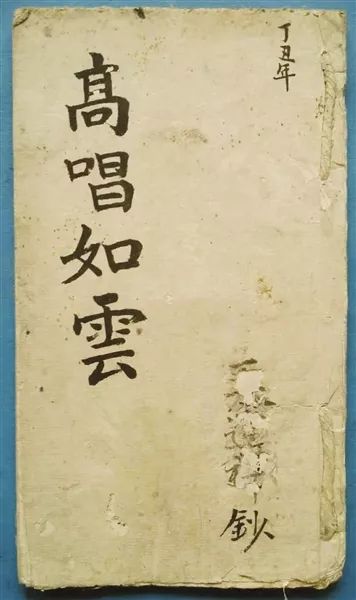 丁丑年
髙唱如雲
鈔